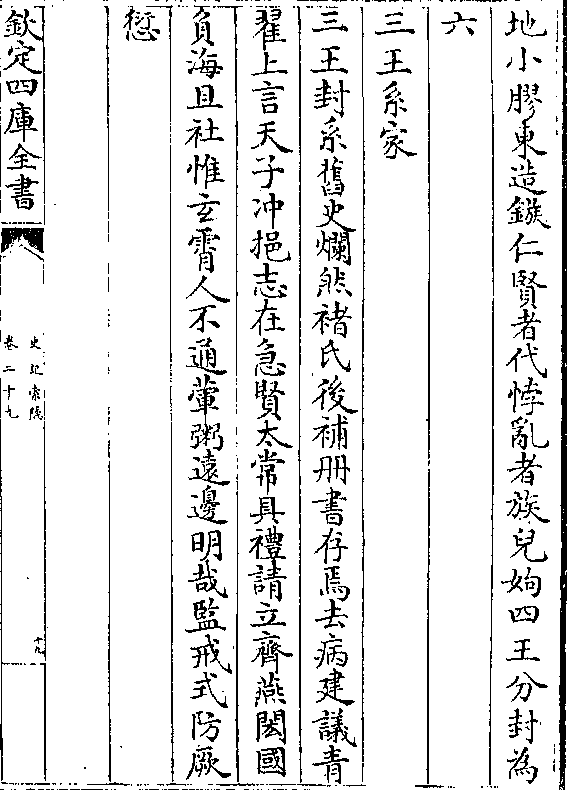 地小膠東造鏃仁賢者代悖亂者族兒姁四王分封為
六
三王系家
三王封系舊史爛然褚氏後補冊書存焉去病建議青
翟上言天子冲挹志在急賢太常具禮請立齊燕閎國
負海旦社惟玄霄人不通葷粥遠邊明哉監戒式防厥
愆
欽定四庫全書
史記索隱
卷二十九
十九